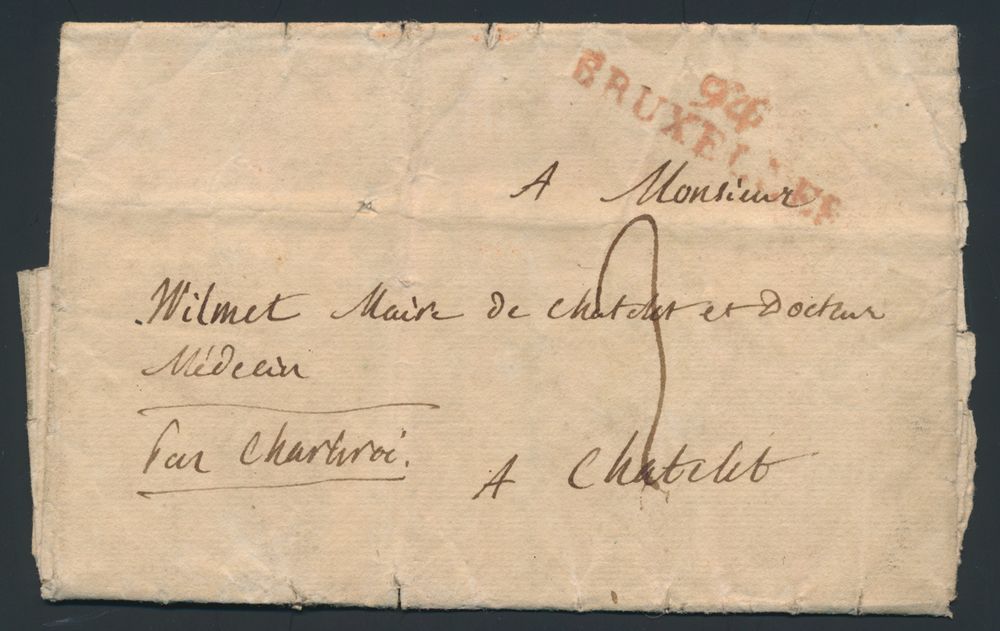 94
BRUXELLES
A Monsieur
Wilmet Maire de Chatelet et Docteur
Médecin
Par Charleroi.
A Chatelet